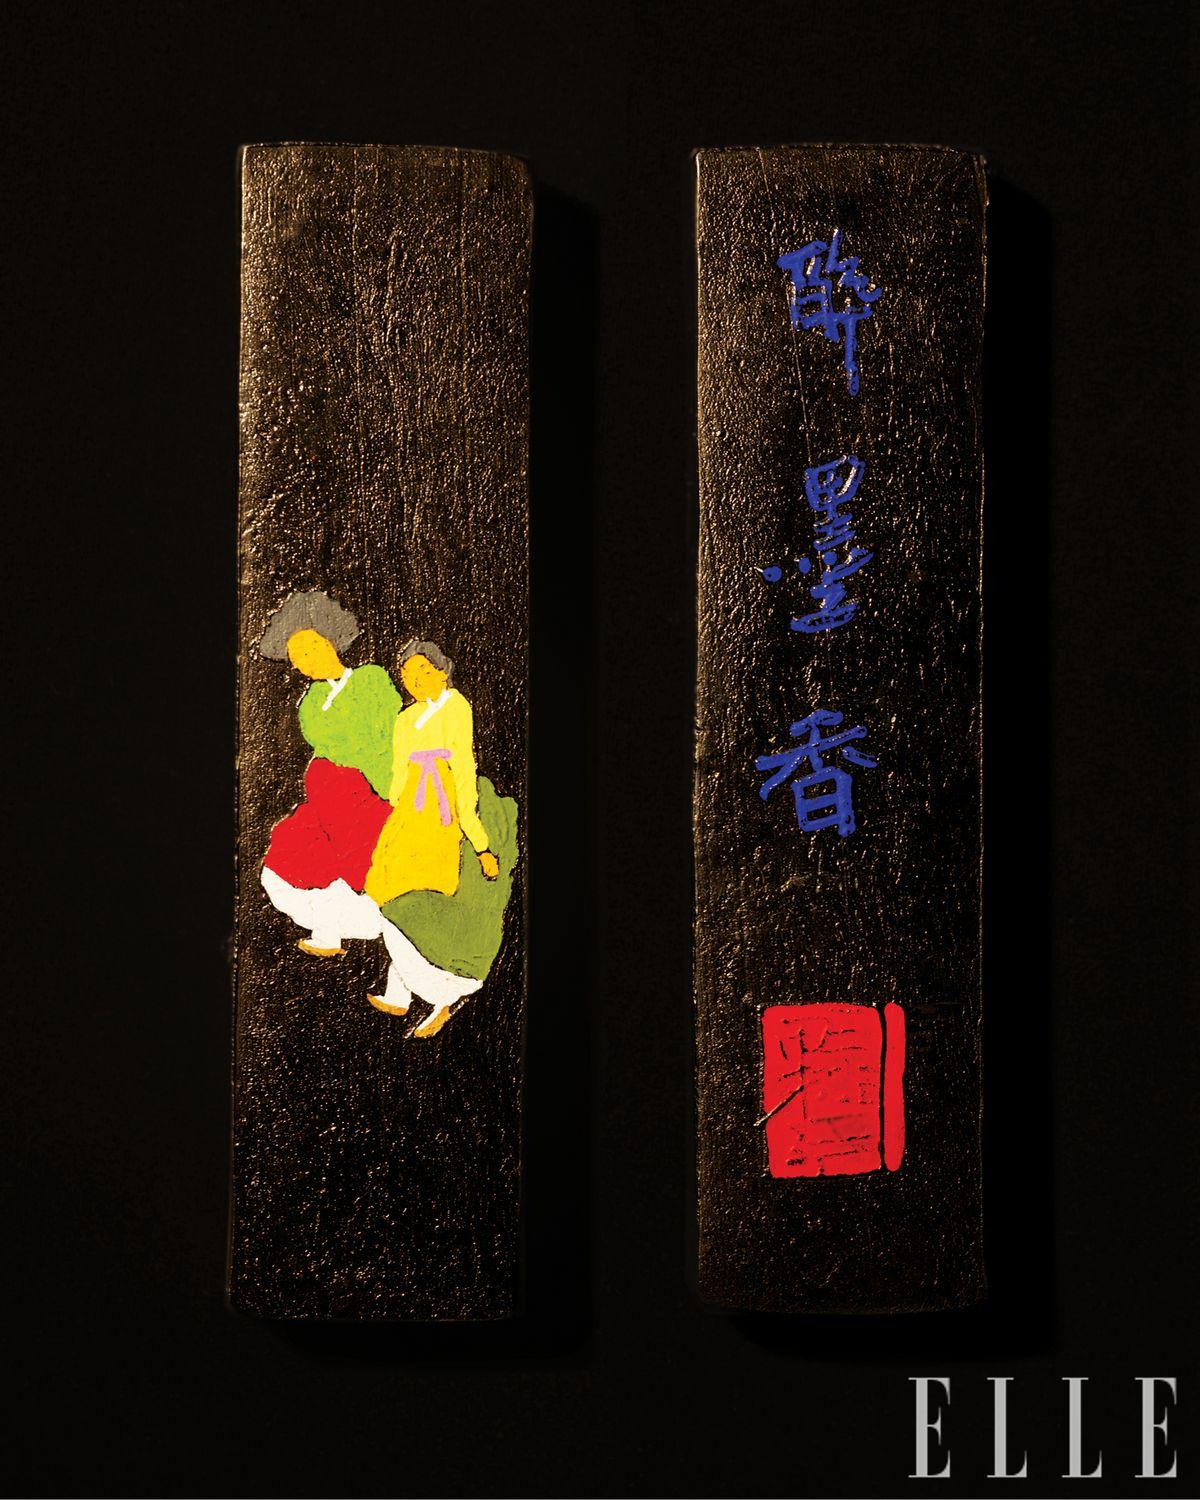 酔墨香
ELLE